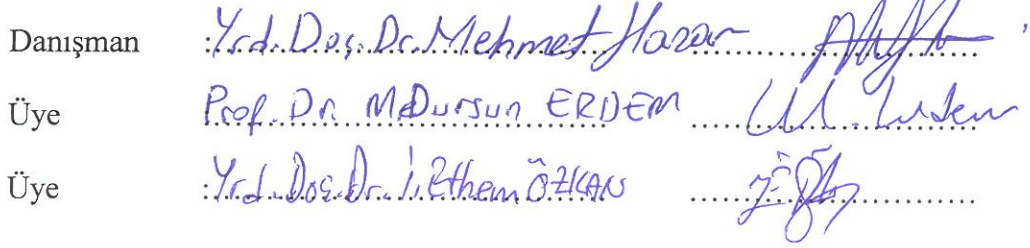 Danışman :Yrd.Doç.Dr.Mehmet Hazar
Üye Prof. Dr. M.Dursun ERDEM
Üye :Yrd.Doç.Dr.İ.Ethem ÖZKAN